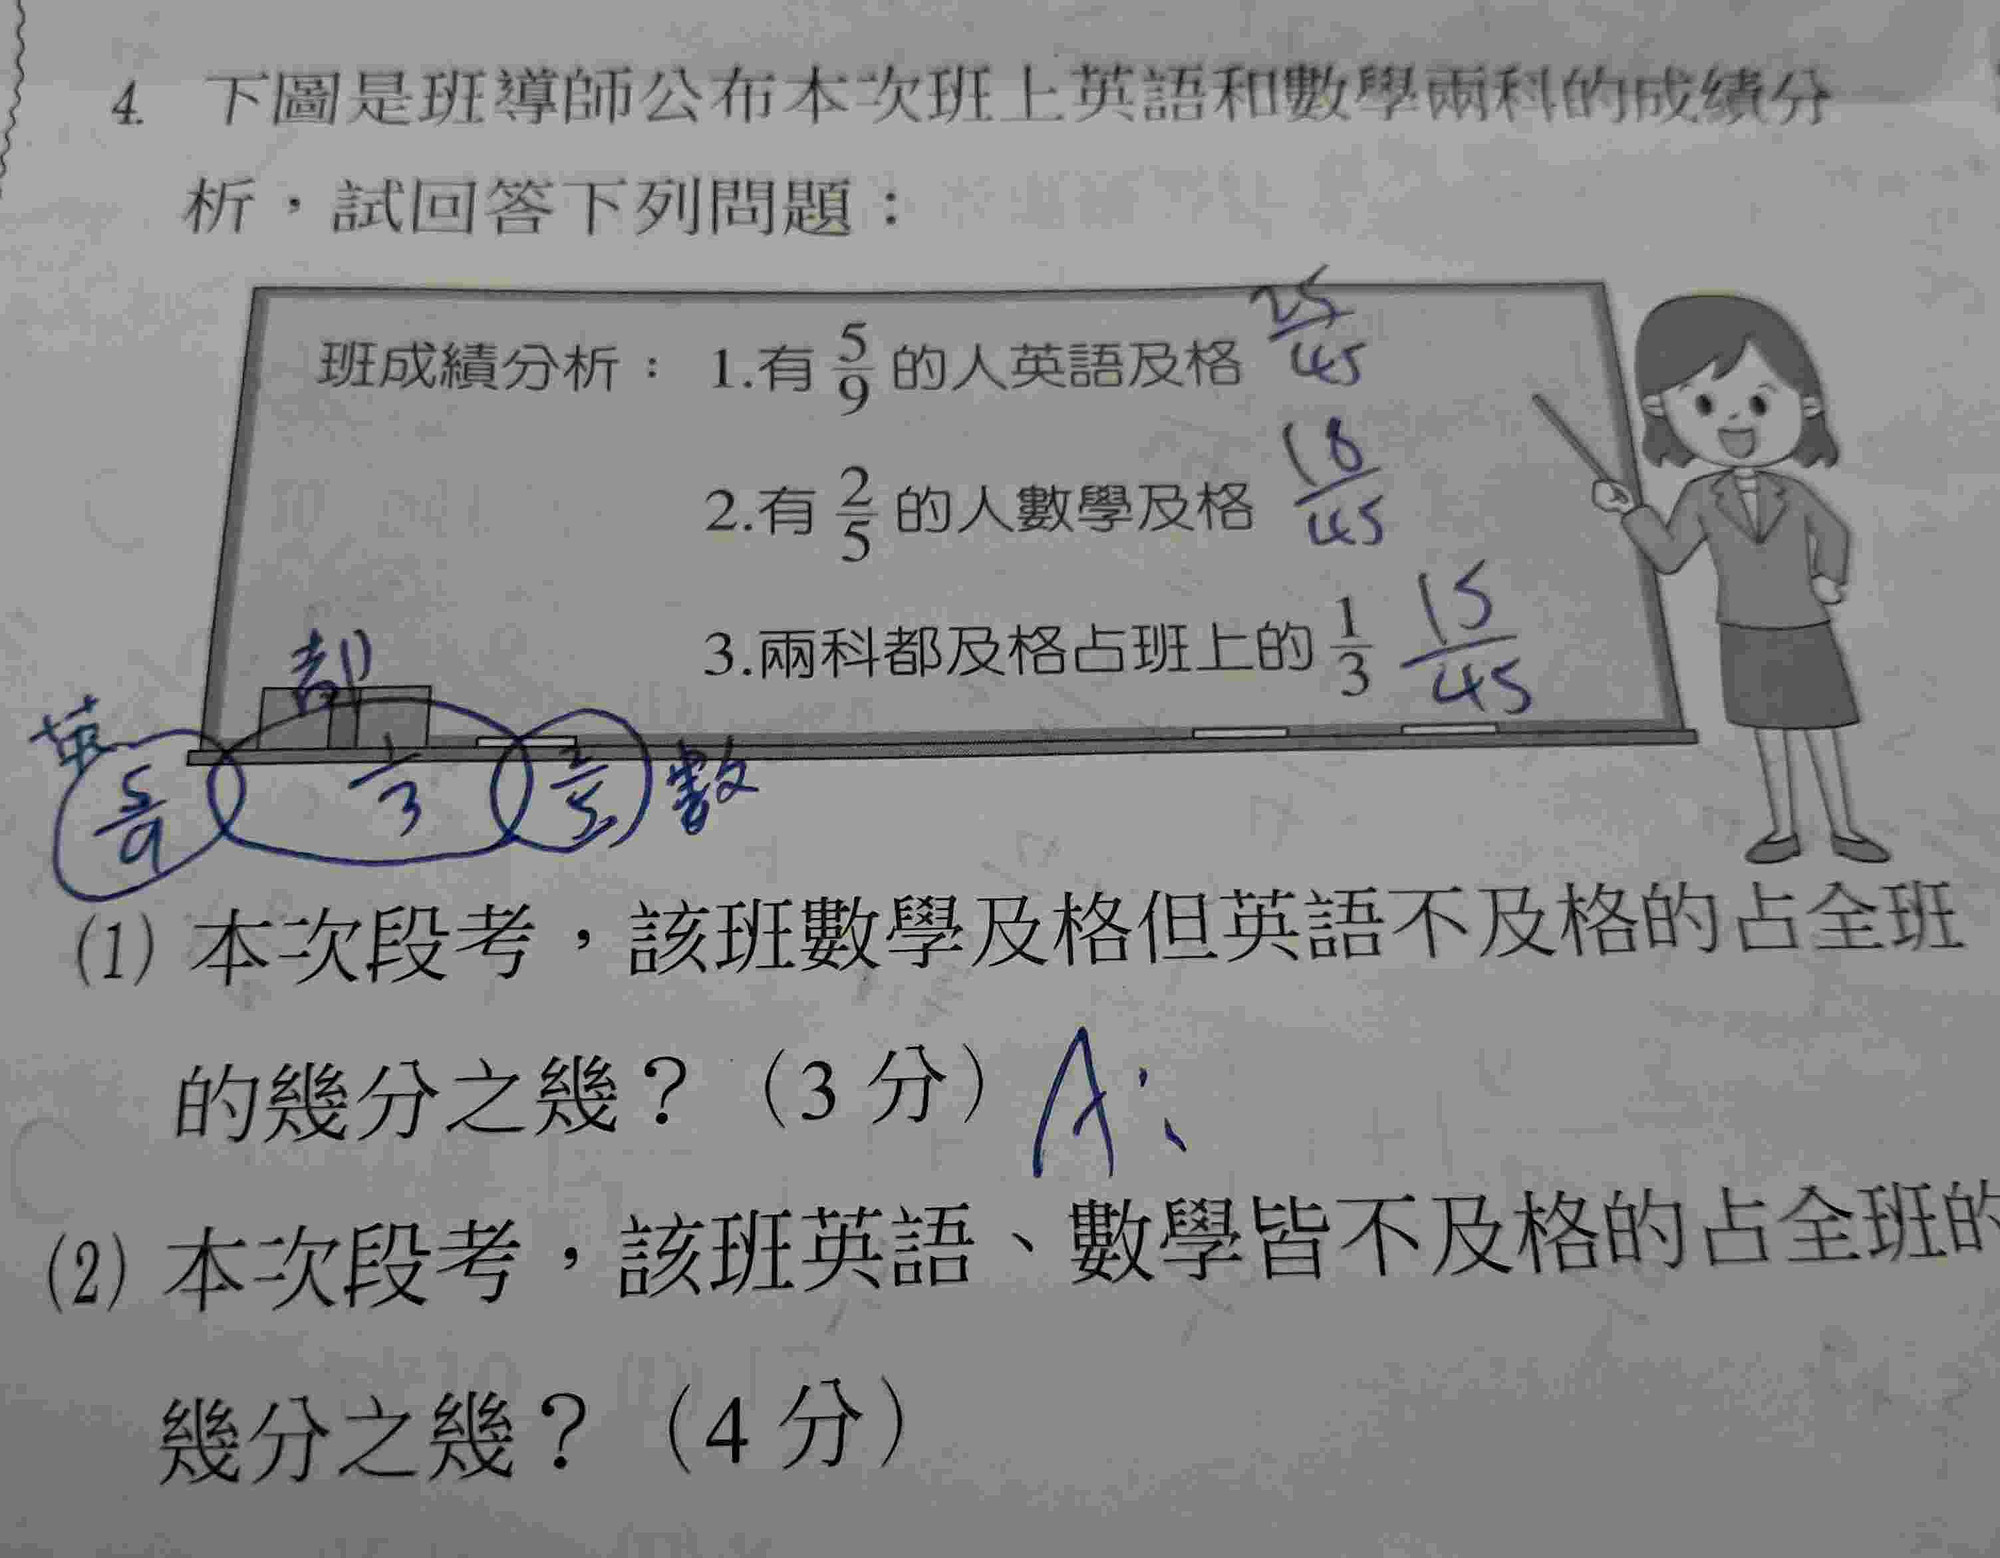 4. 下圖是班導師公布本次班上英語和數學兩科的成績分
析，試回答下列問題：
班成績分析： 1.有 5/9 的人英語及格 25/45
2.有 2/5 的人數學及格 18/45
3.兩科都及格占班上的 1/3 15/45
都
英 5/9 1/3 2/5 數
(1) 本次段考，該班數學及格但英語不及格的占全班
的幾分之幾？（3 分） A:
(2) 本次段考，該班英語、數學皆不及格的占全班的
幾分之幾？（4 分）